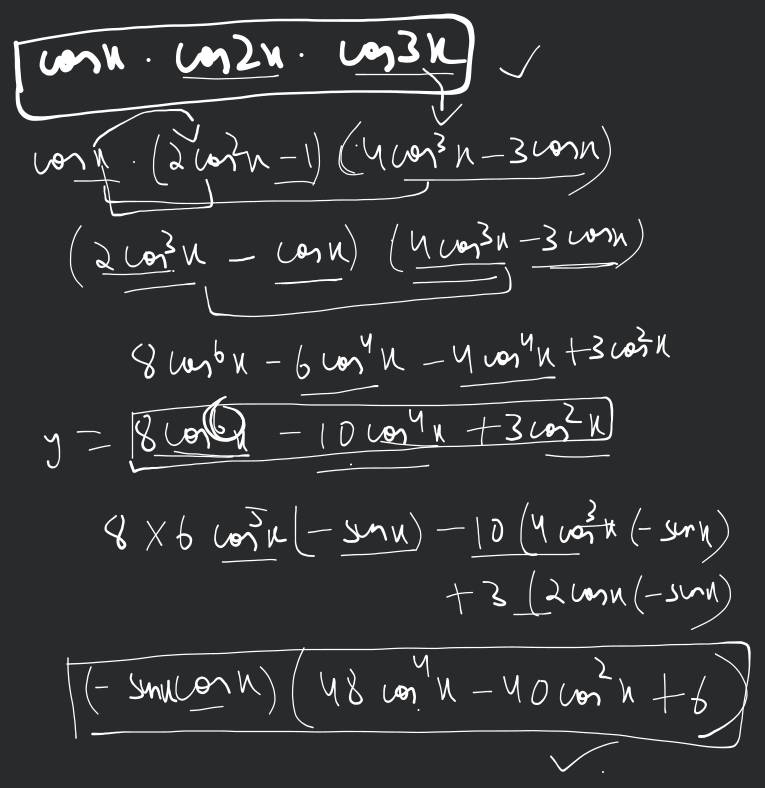 cosx · cos2x · cos3x ✓
cosx · (2cos²x - 1) (4cos³x - 3cosx)
(2cos³x - cosx) (4cos³x - 3cosx)
8cos⁶x - 6cos⁴x - 4cos⁴x + 3cos²x
y = 8cos⁶x - 10cos⁴x + 3cos²x
8 × 6 cos⁵x (-sinx) - 10 (4cos³x (-sinx)
+ 3 (2cosx (-sinx)
(-sinxcosx) (48cos⁴x - 40cos²x + 6) ✓